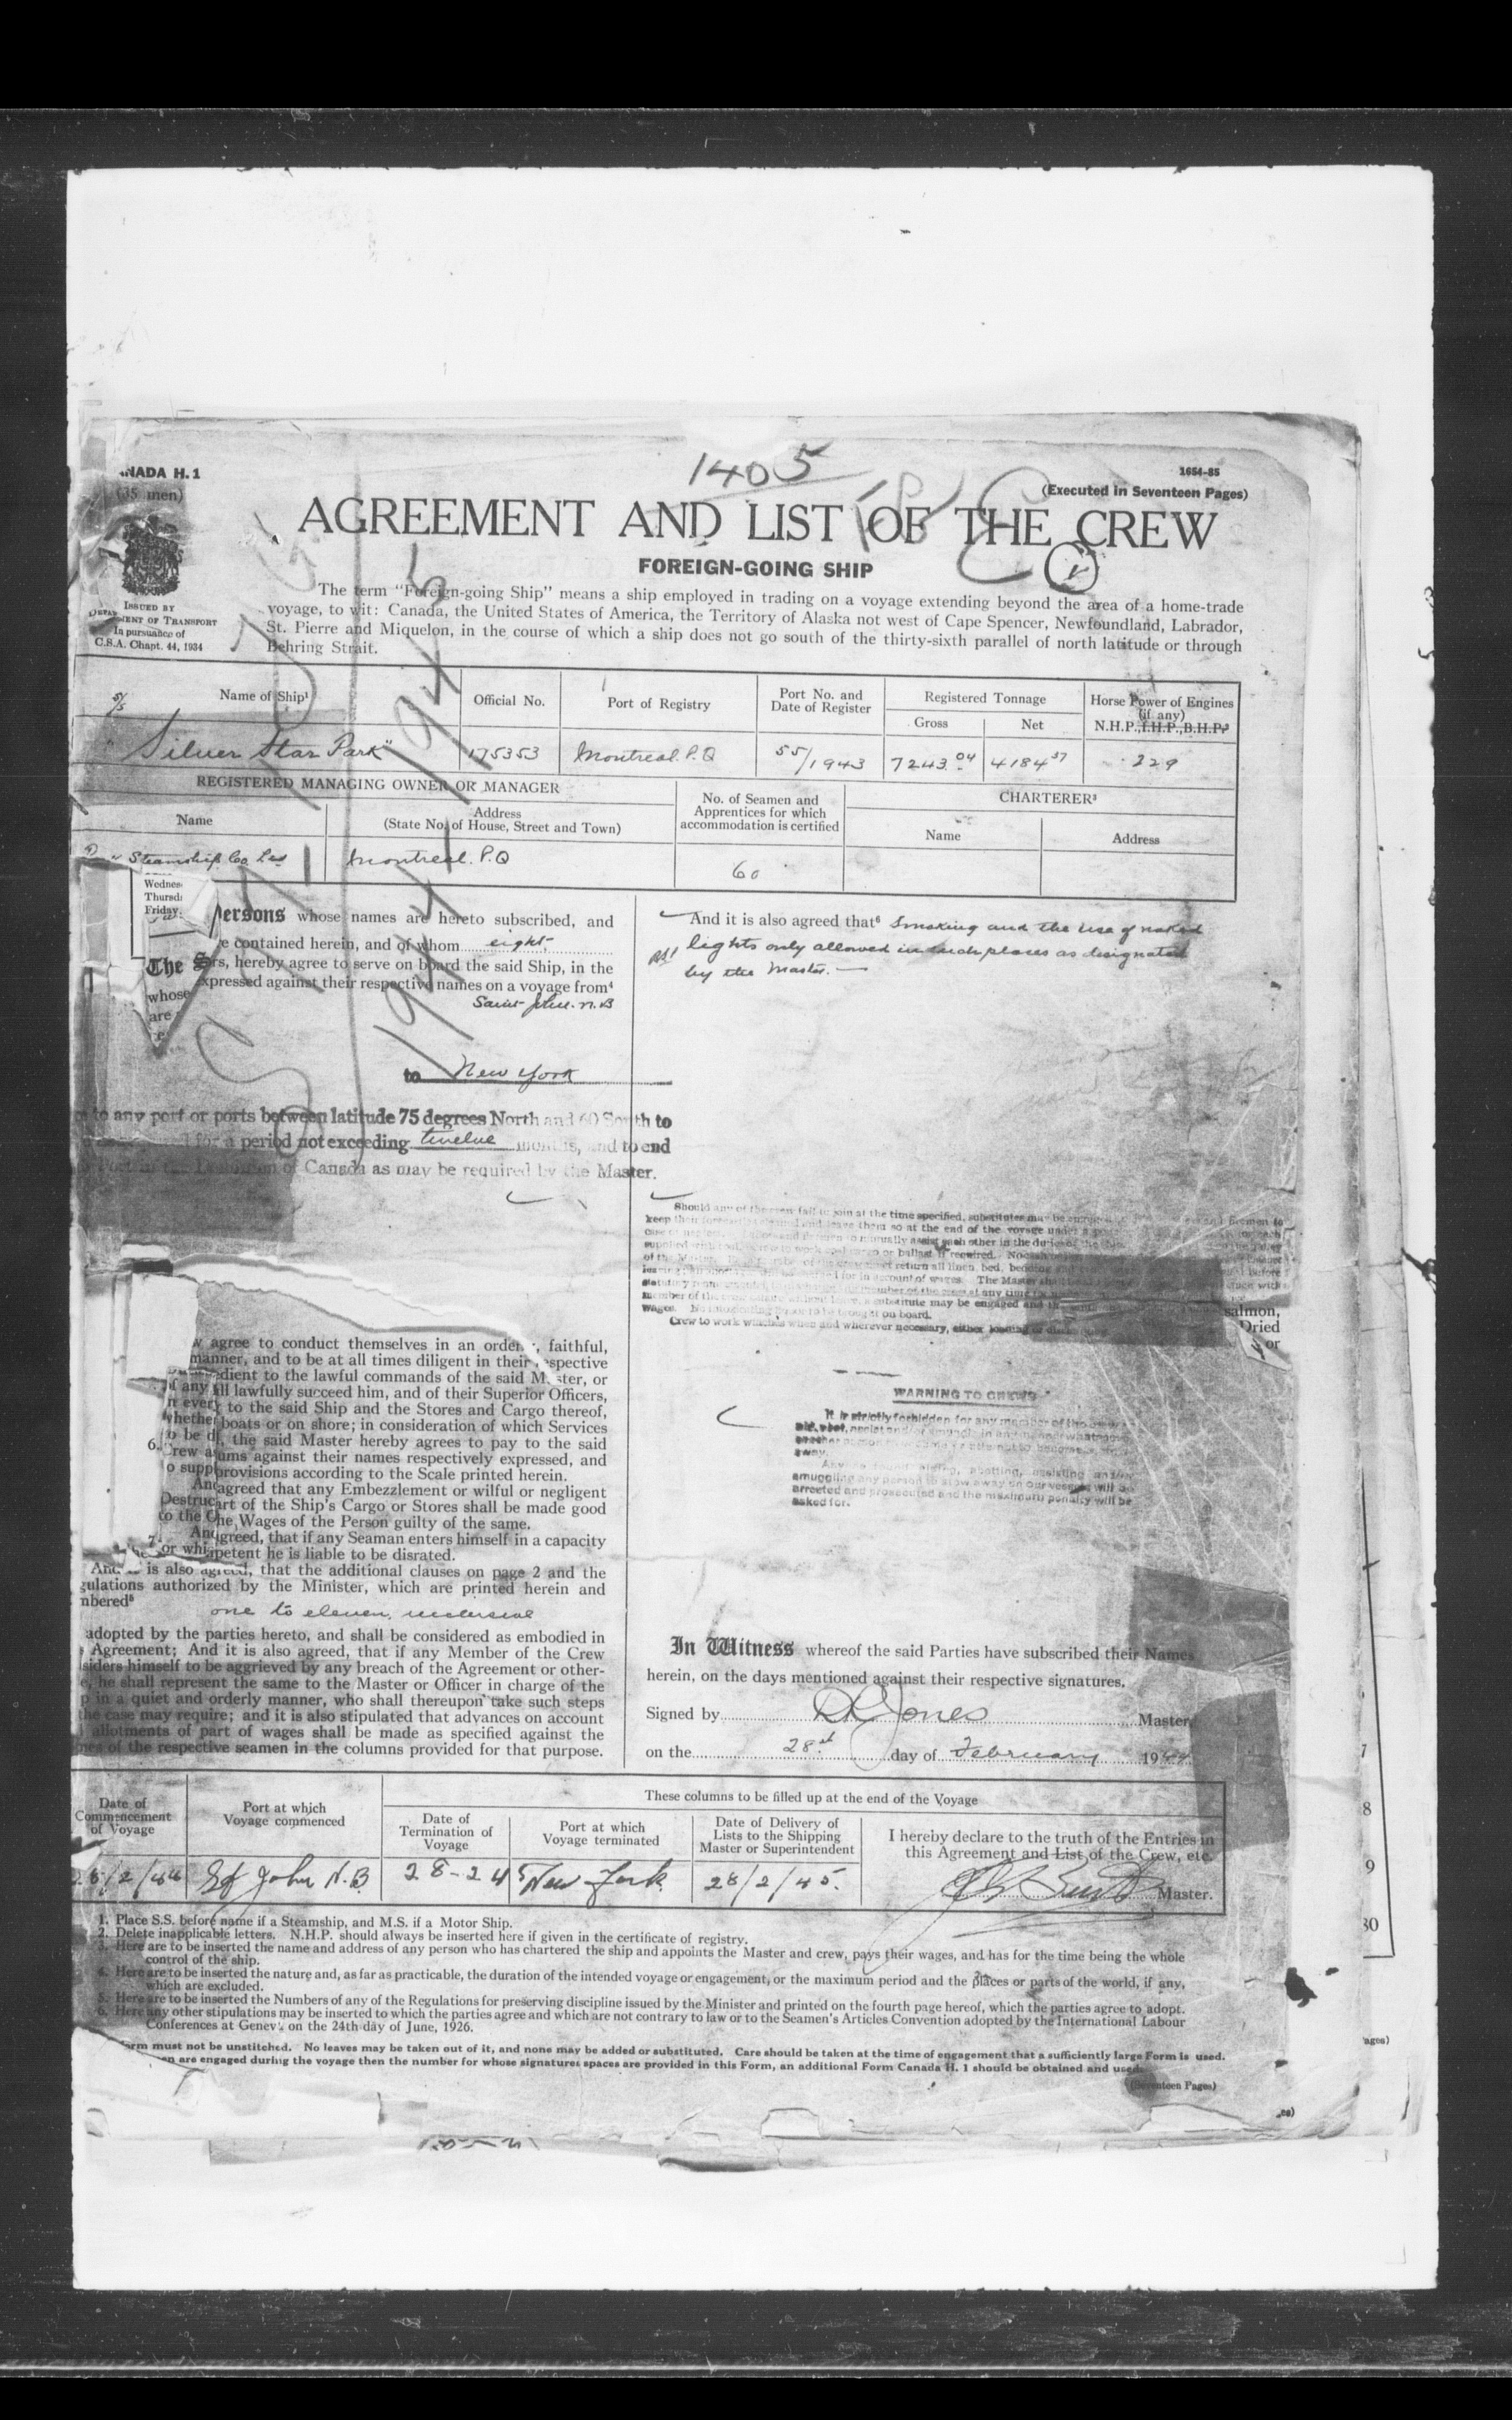 NADA H. 1
(35 men)
1405
1654-85
(Executed in Seventeen Pages)
AGREEMENT AND LIST OF THE CREW
FOREIGN-GOING SHIP
ISSUED BY
MENT OF TRANSPORT
In pursuance of
C.S.A. Chapt. 44, 1934
The term "Foreign-going Ship" means a ship employed in trading on a voyage extending beyond the area of a home-trade
voyage, to wit: Canada, the United States of America, the Territory of Alaska not west of Cape Spencer, Newfoundland, Labrador,
St. Pierre and Miquelon, in the course of which a ship does not go south of the thirty-sixth parallel of north latitude or through
Behring Strait.
S/S Name of Ship¹
Official No.
Port of Registry
Port No. and
Date of Register
Registered Tonnage
Gross
Net
Horse Power of Engines
(if any)
N.H.P., I.H.P., B.H.P.²
"Silver Star Park"
175353
Montreal. P.Q
55/1943
7243.04
4184 37
229
REGISTERED MANAGING OWNER OR MANAGER
Name
Address
(State No. of House, Street and Town)
No. of Seamen and
Apprentices for which
accommodation is certified
CHARTERER³
Name
Address
Steamship Co Ltd
Montreal. P.Q
60
Thursd
Friday
persons whose names are hereto subscribed, and
e contained herein, and of whom eight
The
rs, hereby agree to serve on board the said Ship, in the
whose
expressed against their respective names on a voyage from⁴
are
Saint John. N.B
to New York
to any port or ports between latitude 75 degrees North and 60 South to
for a period not exceeding twelve months, and to end
of Canada as may be required by the Master.
And it is also agreed that⁶ Smoking and the use of naked
lights only allowed in such places as designated
by the Master. —
Should any of the crew fail to join at the time specified, substitutes may be
keep their
and leave them so at the end of the voyage
mutually assist each other in the duties of the
or ballast if required.
return all linen, bed, bedding
for in account of wages. The Master
at any time
a substitute may be engaged and
Wages.
on board.
Crew to work winches when and wherever necessary, either loading or
salmon,
Dried
or
WARNING TO CREWS
It is strictly forbidden for any member of the
away.
abetting, assisting and/or
smuggling any person to stow away on our vessels will be
arrested and prosecuted and the maximum penalty will be
asked for.
agree to conduct themselves in an order , faithful,
manner, and to be at all times diligent in their respective
dient to the lawful commands of the said M ster, or
f any ll lawfully succeed him, and of their Superior Officers,
n every to the said Ship and the Stores and Cargo thereof,
whether boats or on shore; in consideration of which Services
to be d , the said Master hereby agrees to pay to the said
6. Crew a ums against their names respectively expressed, and
o supp provisions according to the Scale printed herein.
And agreed that any Embezzlement or wilful or negligent
Destruc art of the Ship's Cargo or Stores shall be made good
to the O he Wages of the Person guilty of the same.
And greed, that if any Seaman enters himself in a capacity
7. for whi petent he is liable to be disrated.
And is also agreed, that the additional clauses on page 2 and the
gulations authorized by the Minister, which are printed herein and
mbered⁵
one to eleven, inclusive
adopted by the parties hereto, and shall be considered as embodied in
Agreement; And it is also agreed, that if any Member of the Crew
siders himself to be aggrieved by any breach of the Agreement or other-
e, he shall represent the same to the Master or Officer in charge of the
p in a quiet and orderly manner, who shall thereupon take such steps
the case may require; and it is also stipulated that advances on account
allotments of part of wages shall be made as specified against the
mes of the respective seamen in the columns provided for that purpose.
In Witness whereof the said Parties have subscribed their Names
herein, on the days mentioned against their respective signatures.
Signed by Jones Master,
on the 28th day of February 1944
Date of
Commencement
of Voyage
Port at which
Voyage commenced
These columns to be filled up at the end of the Voyage
Date of
Termination of
Voyage
Port at which
Voyage terminated
Date of Delivery of
Lists to the Shipping
Master or Superintendent
I hereby declare to the truth of the Entries in
this Agreement and List of the Crew, etc.
28/2/44
St John N.B.
28-2 45
New York
28/2/45.
Master.
1. Place S.S. before name if a Steamship, and M.S. if a Motor Ship.
2. Delete inapplicable letters. N.H.P. should always be inserted here if given in the certificate of registry.
3. Here are to be inserted the name and address of any person who has chartered the ship and appoints the Master and crew, pays their wages, and has for the time being the whole
control of the ship.
4. Here are to be inserted the nature and, as far as practicable, the duration of the intended voyage or engagement, or the maximum period and the places or parts of the world, if any,
which are excluded.
5. Here are to be inserted the Numbers of any of the Regulations for preserving discipline issued by the Minister and printed on the fourth page hereof, which the parties agree to adopt.
6. Here any other stipulations may be inserted to which the parties agree and which are not contrary to law or to the Seamen's Articles Convention adopted by the International Labour
Conferences at Geneva on the 24th day of June, 1926.
orm must not be unstitched. No leaves may be taken out of it, and none may be added or substituted. Care should be taken at the time of engagement that a sufficiently large Form is used.
en are engaged during the voyage then the number for whose signatures spaces are provided in this Form, an additional Form Canada H. 1 should be obtained and used.
(Seventeen Pages)
7
8
9
30
ages)
es)